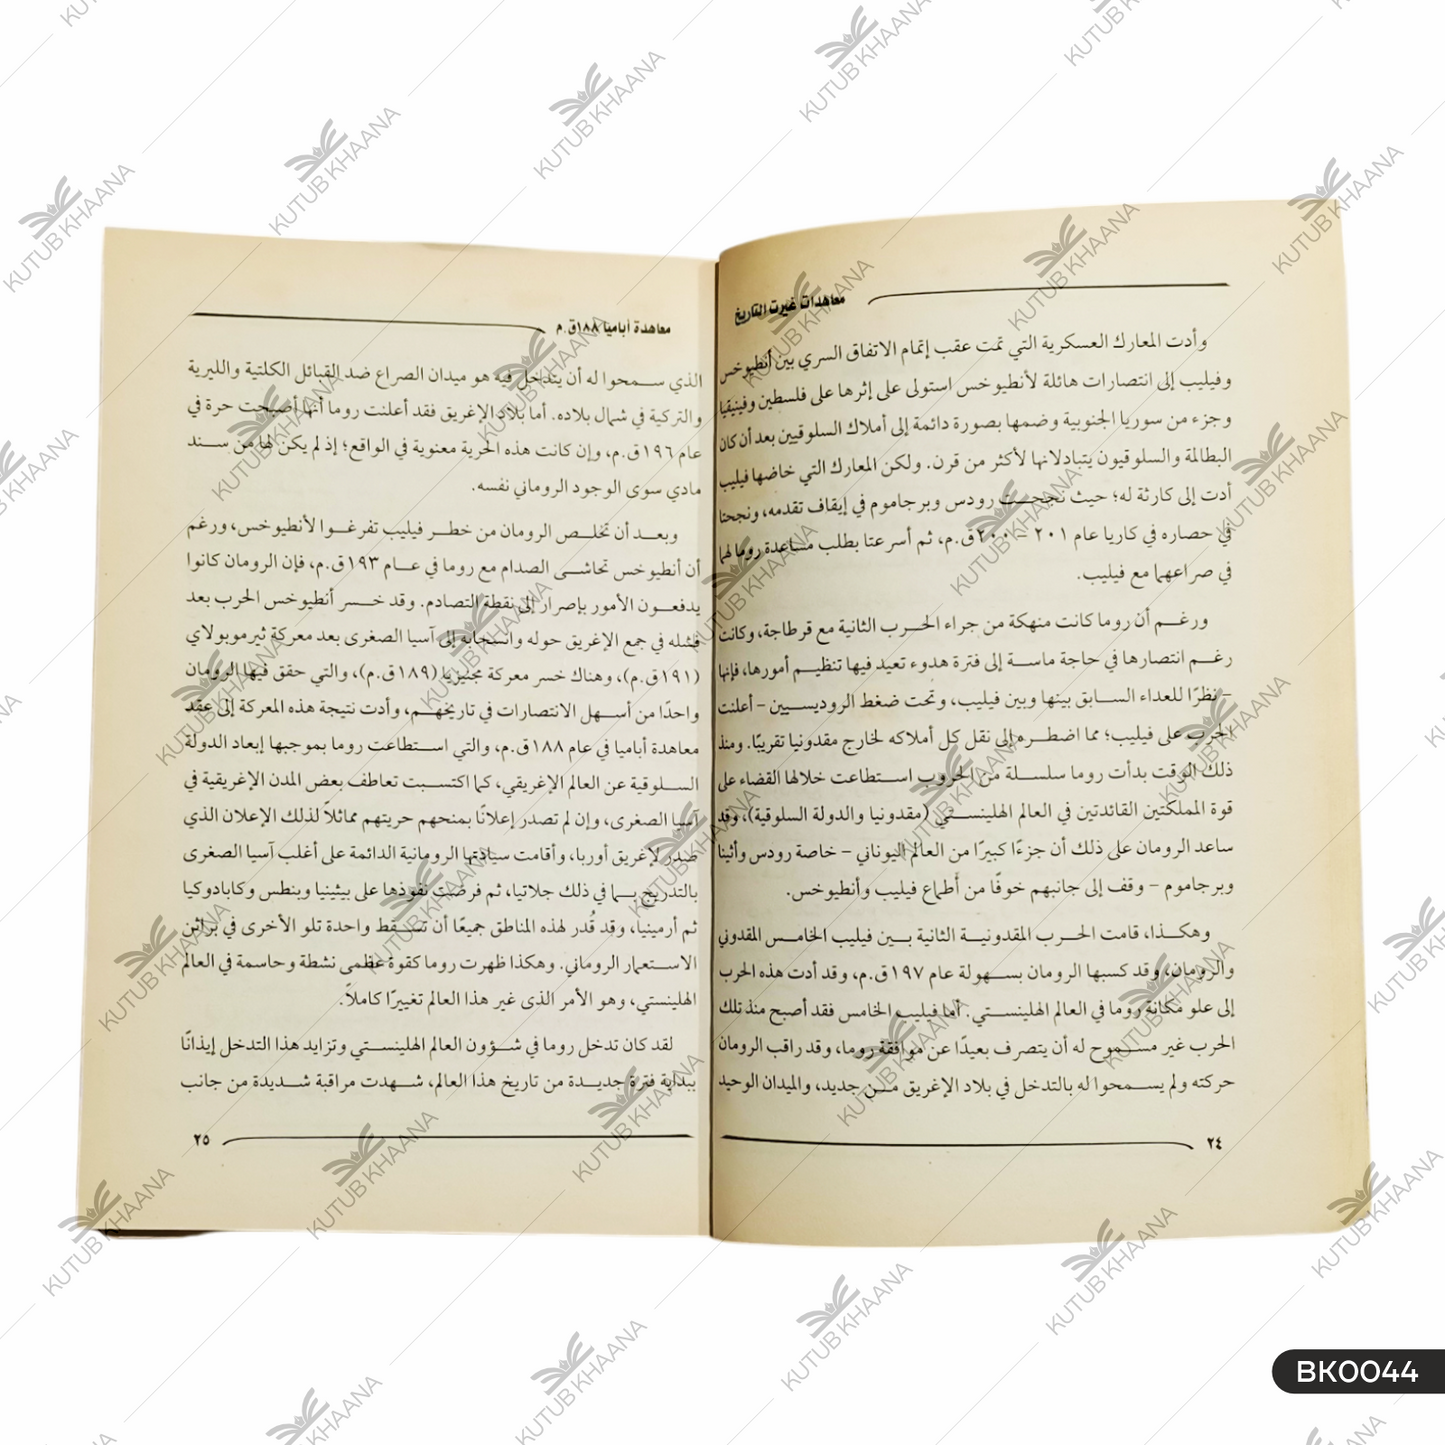 معاهدات غيرت التاريخ
وأدت المعارك العسكرية التي تمت عقب إتمام الاتفاق السري بين أنطيوخس
وفيليب إلى انتصارات هائلة لأنطيوخس استولى على إثرها على فلسطين وفينيقيا
وجزء من سوريا الجنوبية وضمها بصورة دائمة إلى أملاك السلوقيين بعد أن كان
البطالمة والسلوقيون يتبادلانها لأكثر من قرن. ولكن المعارك التي خاضها فيليب
أدت إلى كارثة له؛ حيث نجحت رودس وبرجاموم في إيقاف تقدمه، ونجحتا
في حصاره في كاريا عام ٢٠١ – ٢٠٠ق.م، ثم أسرعتا بطلب مساعدة روما لهما
في صراعهما مع فيليب.
ورغم أن روما كانت منهكة من جراء الحرب الثانية مع قرطاجة، وكانت
رغم انتصارها في حاجة ماسة إلى فترة هدوء تعيد فيها تنظيم أمورها، فإنها
– نظرًا للعداء السابق بينها وبين فيليب، وتحت ضغط الروديسيين – أعلنت
الحرب على فيليب؛ مما اضطره إلى نقل كل أملاكه لخارج مقدونيا تقريبًا. ومنذ
ذلك الوقت بدأت روما سلسلة من الحروب استطاعت خلالها القضاء على
قوة المملكتين القائدتين في العالم الهلينستي (مقدونيا والدولة السلوقية)، وقد
ساعد الرومان على ذلك أن جزءًا كبيرًا من العالم اليوناني – خاصة رودس وأثينا
وبرجاموم – وقف إلى جانبهم خوفًا من أطماع فيليب وأنطيوخس.
وهكذا، قامت الحرب المقدونية الثانية بين فيليب الخامس المقدوني
والرومان، وقد كسبها الرومان بسهولة عام ١٩٧ق.م، وقد أدت هذه الحرب
إلى علو مكانة روما في العالم الهلينستي. أما فيليب الخامس فقد أصبح منذ تلك
الحرب غير مسموح له أن يتصرف بعيدًا عن موافقة روما، وقد راقب الرومان
حركته ولم يسمحوا له بالتدخل في بلاد الإغريق من جديد، والميدان الوحيد
٢٤
معاهدة أباميا ١٨٨ق.م
الذي سمحوا له أن يتدخل فيه هو ميدان الصراع ضد القبائل الكلتية والليرية
والتركية في شمال بلاده. أما بلاد الإغريق فقد أعلنت روما أنها أصبحت حرة في
عام ١٩٦ق.م، وإن كانت هذه الحرية معنوية في الواقع؛ إذ لم يكن لها من سند
مادي سوى الوجود الروماني نفسه.
وبعد أن تخلص الرومان من خطر فيليب تفرغوا لأنطيوخس، ورغم
أن أنطيوخس تحاشى الصدام مع روما في عام ١٩٣ق.م، فإن الرومان كانوا
يدفعون الأمور بإصرار إلى نقطة التصادم. وقد خسر أنطيوخس الحرب بعد
فشله في جمع الإغريق حوله وانسحابه إلى آسيا الصغرى بعد معركة ثيرموبولاي
(١٩١ق.م)، وهناك خسر معركة مجنيزيا (١٨٩ق.م)، والتي حقق فيها الرومان
واحدًا من أسهل الانتصارات في تاريخهم، وأدت نتيجة هذه المعركة إلى عقد
معاهدة أباميا في عام ١٨٨ق.م، والتي استطاعت روما بموجبها إبعاد الدولة
السلوقية عن العالم الإغريقي، كما اكتسبت تعاطف بعض المدن الإغريقية في
آسيا الصغرى، وإن لم تصدر إعلانًا بمنحهم حريتهم مماثلاً لذلك الإعلان الذي
صدر لإغريق أوربا، وأقامت سيادتها الرومانية الدائمة على أغلب آسيا الصغرى
بالتدريج بما في ذلك جلاتيا، ثم فرضت نفوذها على بيثينيا وبنطس وكابادوكيا
ثم أرمينيا، وقد قُدر لهذه المناطق جميعًا أن تسقط واحدة تلو الأخرى في براثن
الاستعمار الروماني. وهكذا ظهرت روما كقوة عظمى نشطة وحاسمة في العالم
الهلينستي، وهو الأمر الذى غير هذا العالم تغييرًا كاملاً.
لقد كان تدخل روما في شؤون العالم الهلينستي وتزايد هذا التدخل إيذانًا
ببداية فترة جديدة من تاريخ هذا العالم، شهدت مراقبة شديدة من جانب
٢٥
KUTUB KHAANA
BK0044